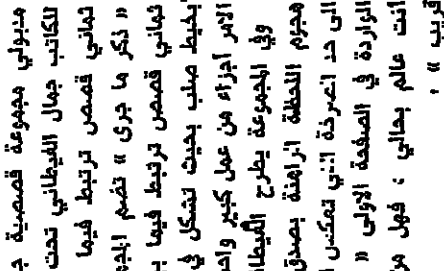 مدبولي مجموعة قصصية ج
للكاتب جمال الغيطاني تحت
ثماني قصص ترتبط فيما
« ذكر ما جرى » تضم المجم
ثماني قصص ترتبط فيما ب
بخيط صلب بحيث تشكل في
الامر أجزاء من عمل كبير واحد
وفي المجموعة يطرح الغيطا
هجوم اللحظة الراهنة بصدق
الى حد الصرخة التي تعكس ا
الواردة في الصفحة الاولى «
أنت عالم بحالي : فهل من
قريب » .